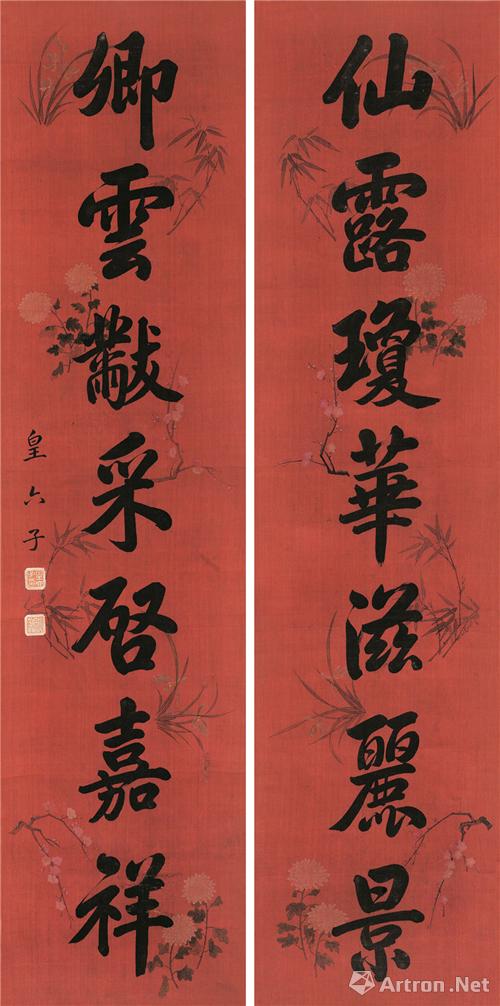 仙露瓊華滋麗景
卿雲黻采啓嘉祥
皇六子
Artron.Net